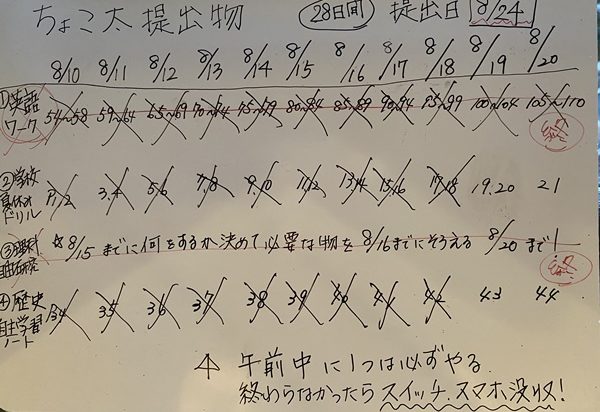 ちょこ太提出物 28日間 提出日 8/24
8/10 8/11 8/12 8/13 8/14 8/15 8/16 8/17 8/18 8/19 8/20
①英語ワーク 54~58 59~64 65~69 70~74 75~79 80~84 85~89 90~94 95~99 100~104 105~110 終
②学校夏休みドリル P1,2 3,4 5,6 7,8 9,10 11,12 13,14 15,16 17,18 19,20 21
③理科自由研究 ☆8/15までに何をするか決めて必要な物を8/16までにそろえる 8/20まで! 終
④歴史自主学習ノート 34 35 36 37 38 39 40 41 42 43 44
午前中に1つは必ずやる
終わらなかったらスイッチ、スマホ没収!